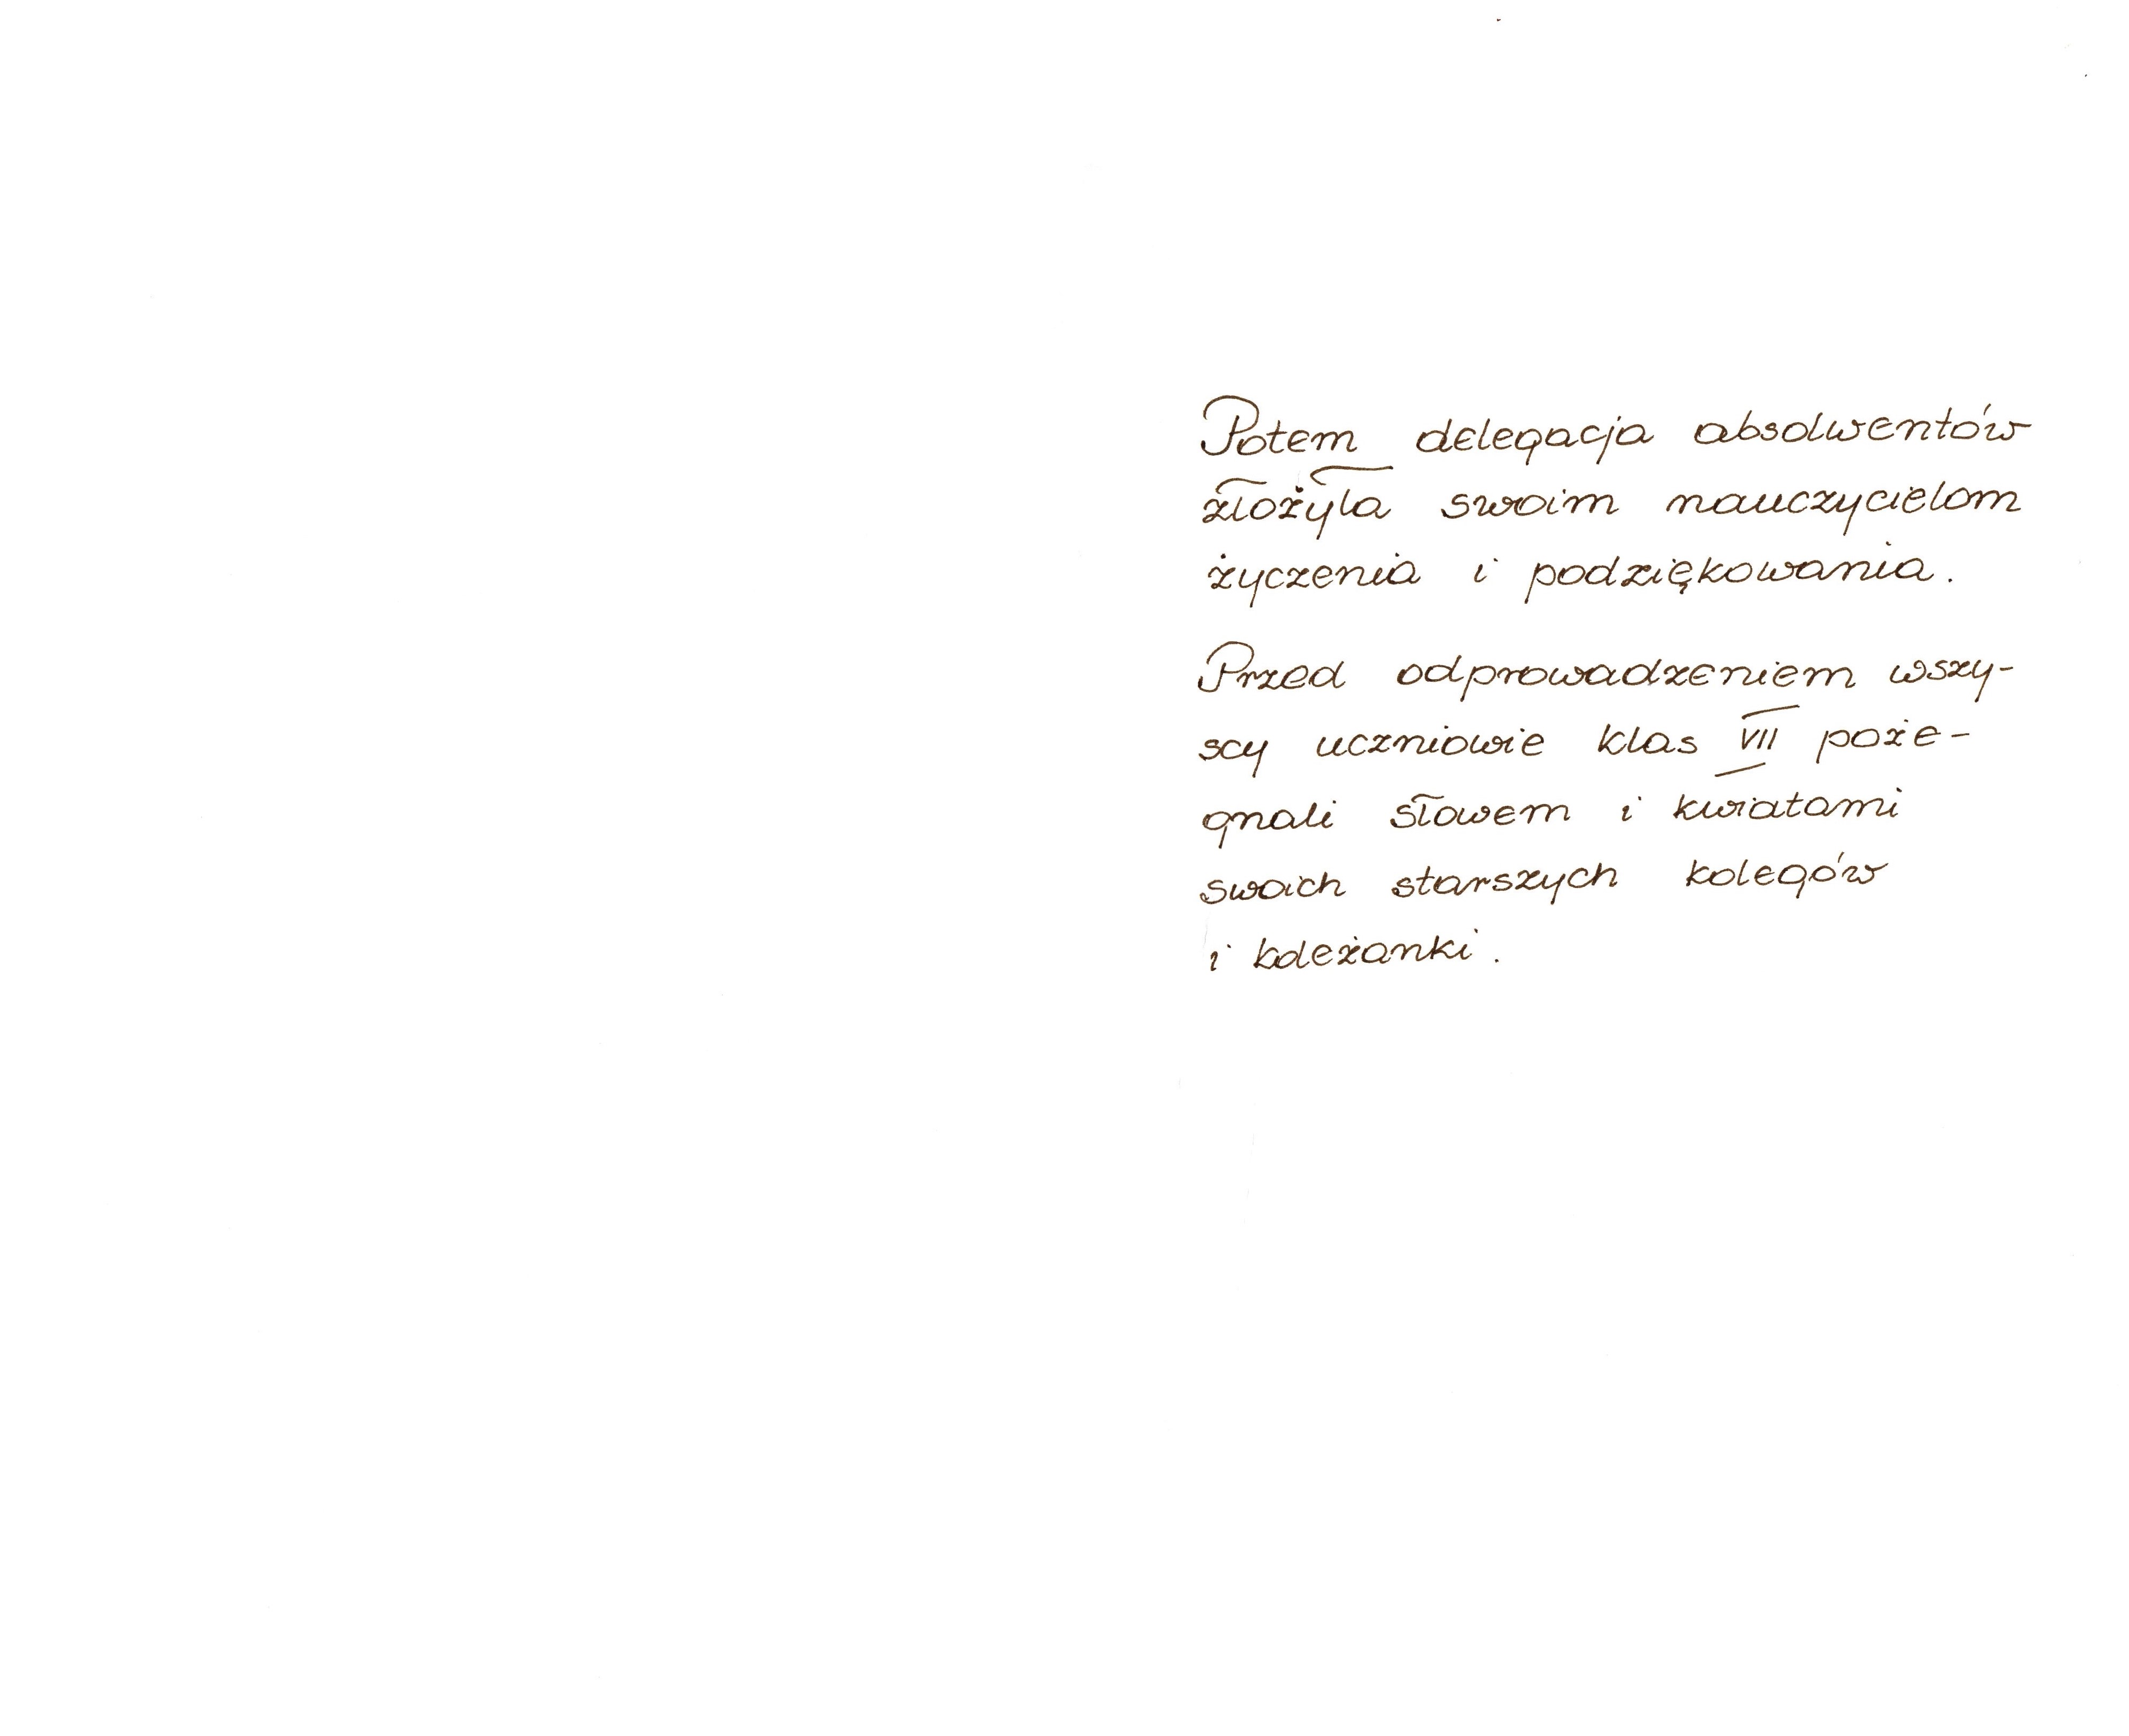 Potem delegacja absolwentów
złożyła swoim nauczycielom
życzenia i podziękowania.
Przed odprowadzeniem wszy-
scy uczniowie klas VII poże-
gnali słowem i kwiatami
swoich starszych kolegów
i koleżanki.